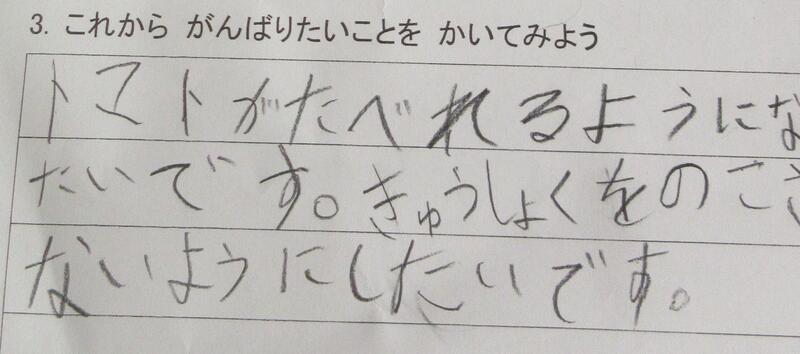 3. これから がんばりたいことを かいてみよう
トマトがたべれるようにな
たいです。きゅうしょくをのこさ
ないようにしたいです。